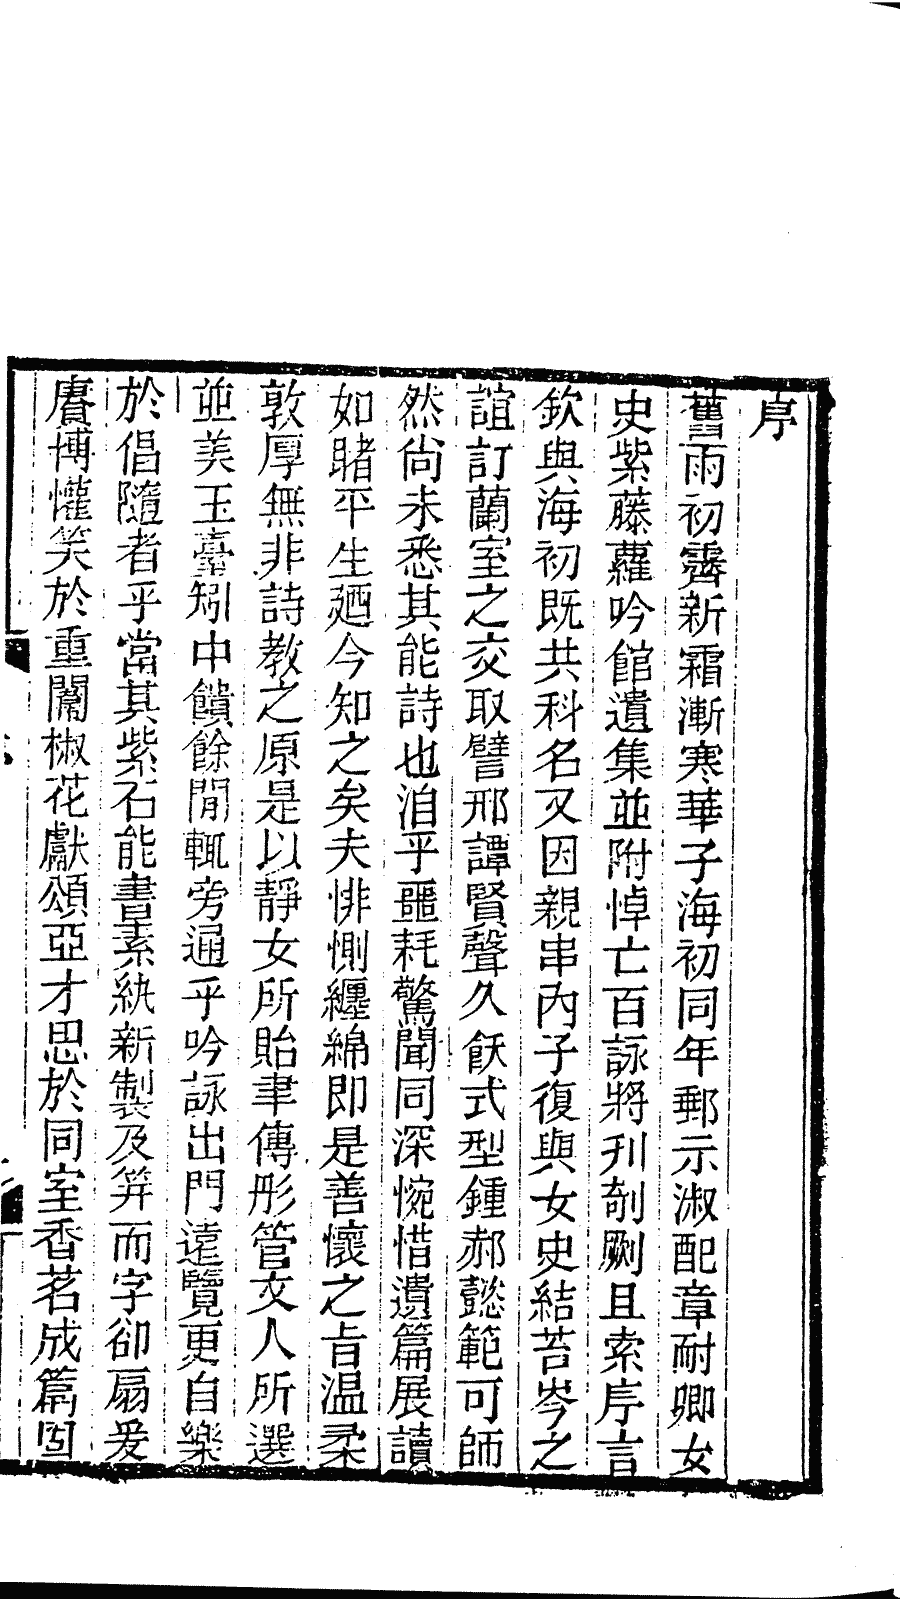 序
舊雨初霽新霜漸寒華子海初同年郵示淑配章耐卿女
史紫藤蘿吟館遺集並附悼亡百詠將刋剞劂且索序言
欽與海初既共科名又因親串內子復與女史結苔岑之
誼訂蘭室之交取譬邢譚賢聲久飫式型鍾郝懿範可師
然尙未悉其能詩也洎乎噩耗驚聞同深惋惜遺篇展讀
如睹平生廼今知之矣夫悱惻纏綿即是善懷之旨温柔
敦厚無非詩教之原是以靜女所貽聿傳彤管文人所選
並美玉臺矧中饋餘閒輒旁通乎吟詠出門遠覽更自樂
於倡隨者乎當其紫石能書素紈新製及笄而字卻扇爰
賡博懽笑於重闈椒花獻頌亞才思於同室香茗成篇固